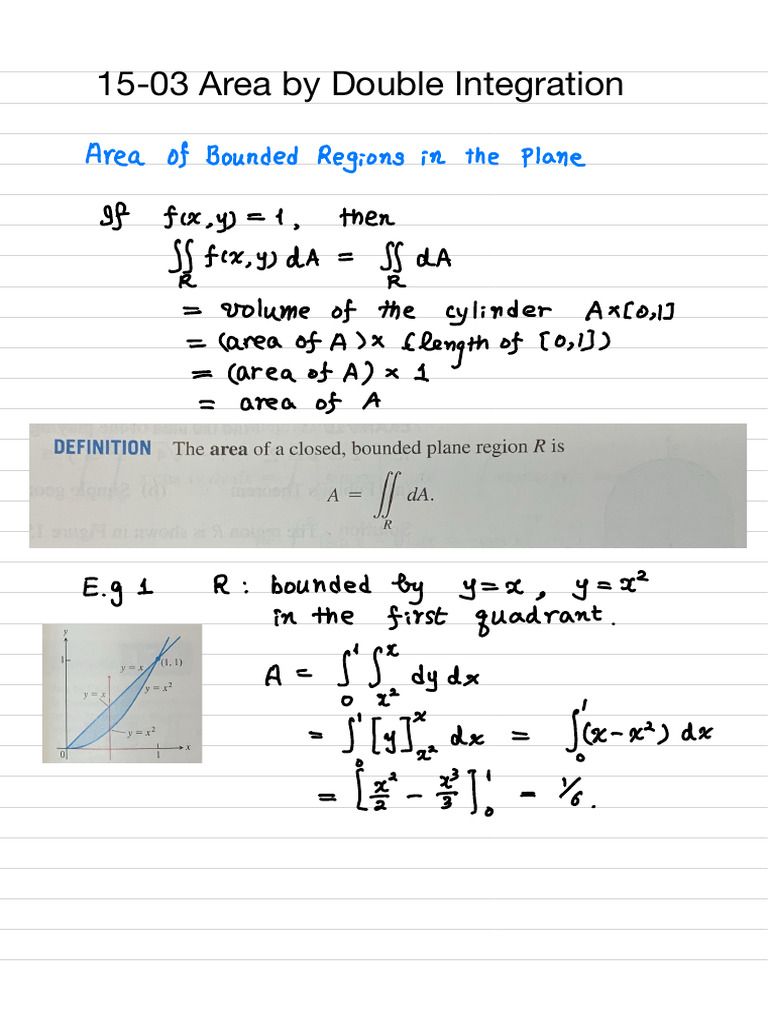 15-03 Area by Double Integration
Area of Bounded Regions in the Plane
If f(x,y) = 1, then
∬_R f(x,y) dA = ∬_R dA
= volume of the cylinder A×[0,1]
= (area of A) × (length of [0,1])
= (area of A) × 1
= area of A
DEFINITION The area of a closed, bounded plane region R is
A = ∬_R dA.
E.g 1 R : bounded by y=x, y=x²
in the first quadrant.
y
1
(1, 1)
y = x
y = x²
y = x
y = x²
0
1
x
A = ∫₀¹ ∫_{x²}^{x} dy dx
= ∫₀¹ [y]_{x²}^{x} dx = ∫₀¹ (x-x²) dx
= [x²/2 - x³/3]₀¹ = 1/6.